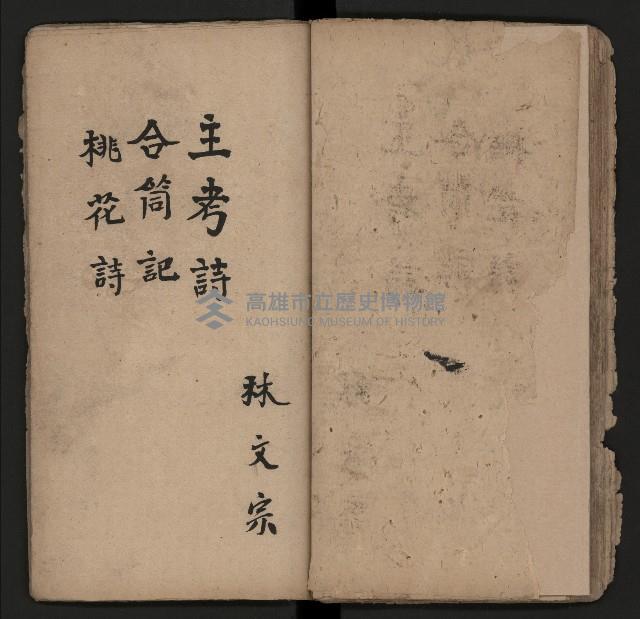 主考詩
合筒記
桃花詩
林文宗
高雄市立歷史博物館
KAOHSIUNG MUSEUM OF HISTORY